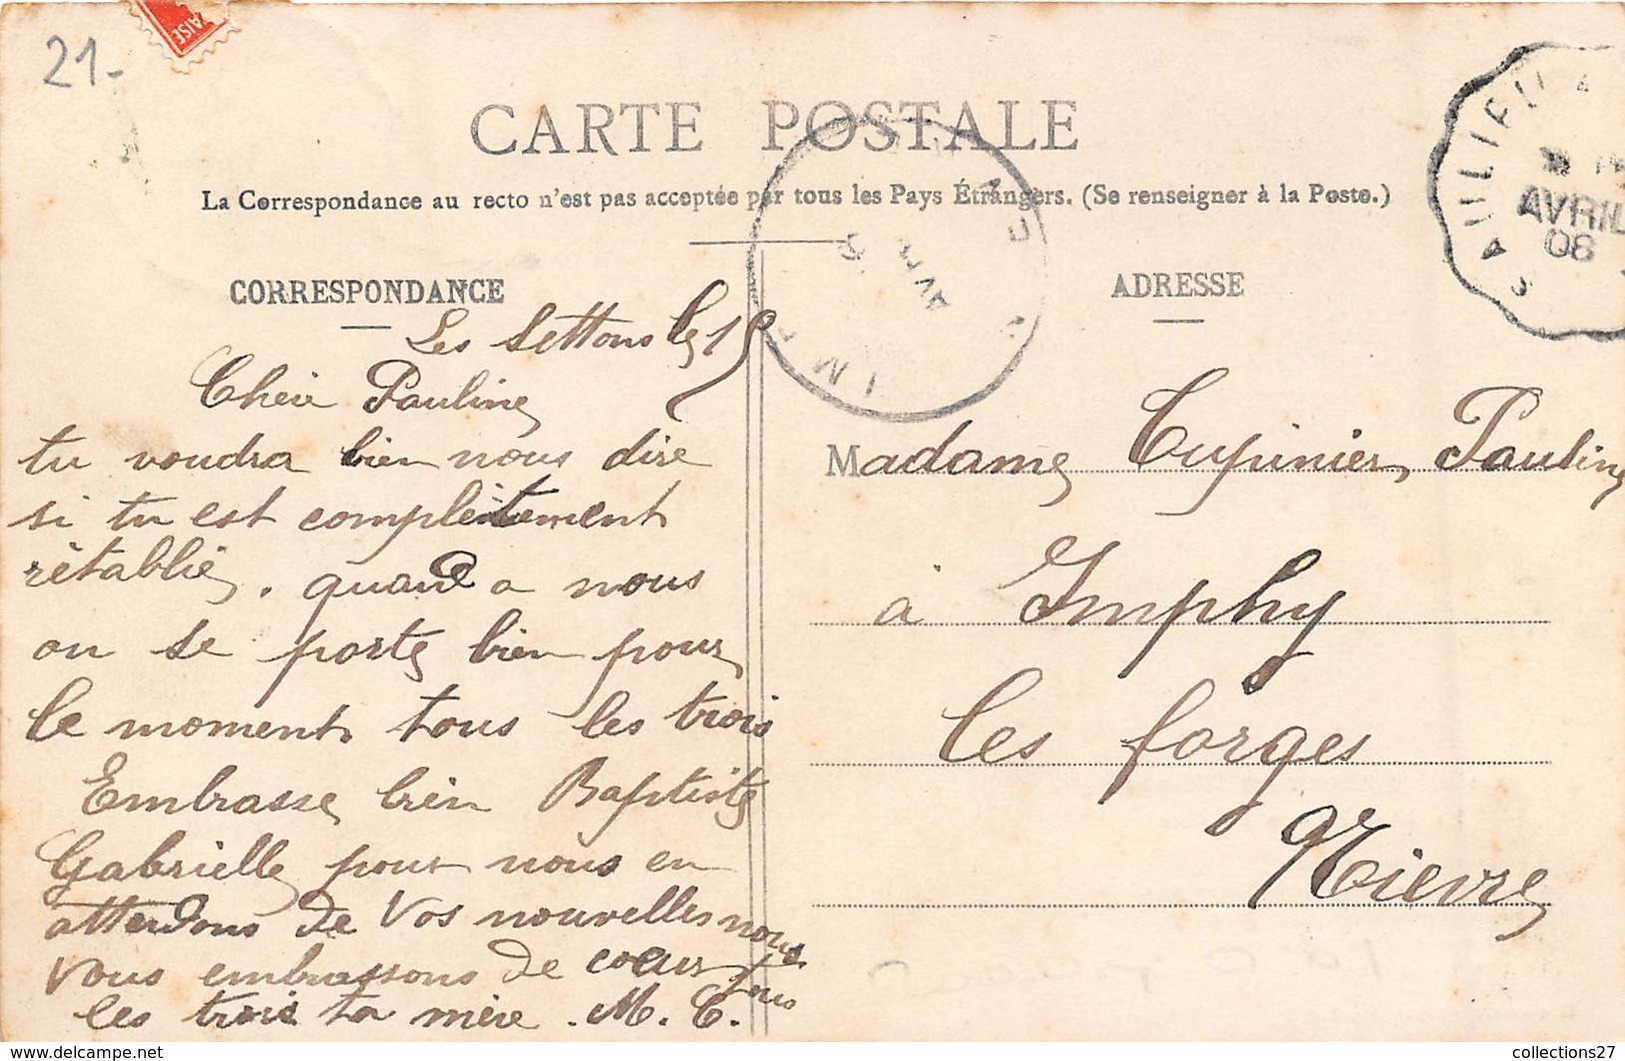 21-
AISE
CARTE POSTALE
La Correspondance au recto n'est pas acceptée par tous les Pays Étrangers. (Se renseigner à la Poste.)
CORRESPONDANCE
Les Settons le 15
Cheir Pauline
tu voudra bien nous dire
si tu est complètement
rétablie. quand a nous
on se porte bien pour
le moment tous les trois
Embrasse bien Baptiste
Gabrielle pour nous en
attendons de vos nouvelles nous
vous embrassons de coeur tous
les trois ta mère. M. C.
ADRESSE
SAULIEU A
AVRIL
08
Madame Cupinier Pauline
à Imphy
les forges
Nievre
collections27